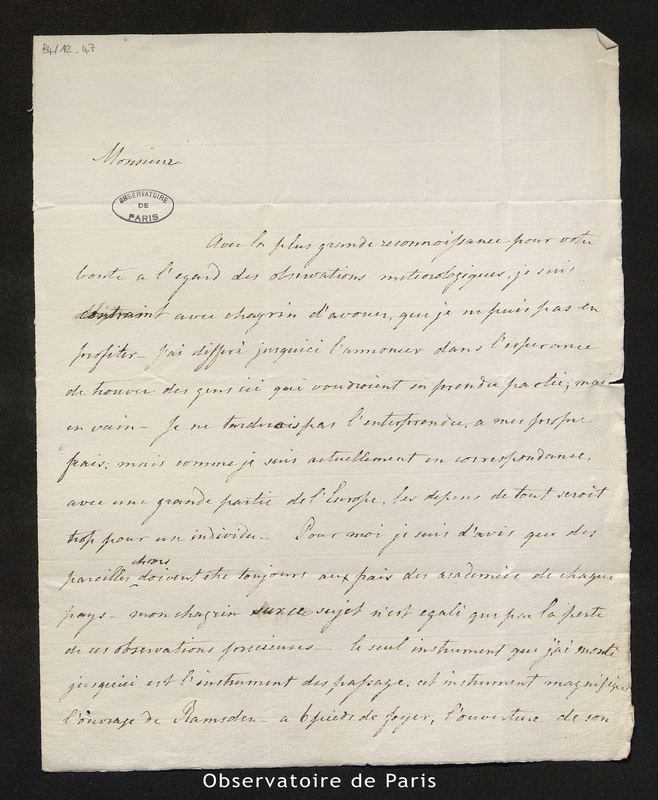 84/12-47
Monsieur
OBSERVATOIRE
DE
PARIS
Avec la plus grande reconnoissance pour votre
bonte a l'egard des observations meteorologiques, je suis
contraint avec chagrin d'avouer, que je ne puis pas en
profiter - J'ai differé jusquici l'annoncer dans l'esperance
de trouver des gens ici qui voudroient en prendre partie, mais
en vain - Je ne tarderais pas l'entreprendre, a mes propre
frais; mais comme je suis actuellement en correspondance,
avec une grande partie de l'Europe, les depens de tout seroit
trop pour un individu - Pour moi je suis d'avis que des
choses
pareilles doivent etre toujours aux frais des academies de chaque
pays - mon chagrin sur ce sujet n'est egalé que par la perte
de ces observations precieuses - le seul instrument que j'ai monté
jusquici est l'instrument des passage; cet instrument magnifique
l'ouvrage de Ramsden - a 6 pieds de foyer, l'ouverture de son
Observatoire de Paris